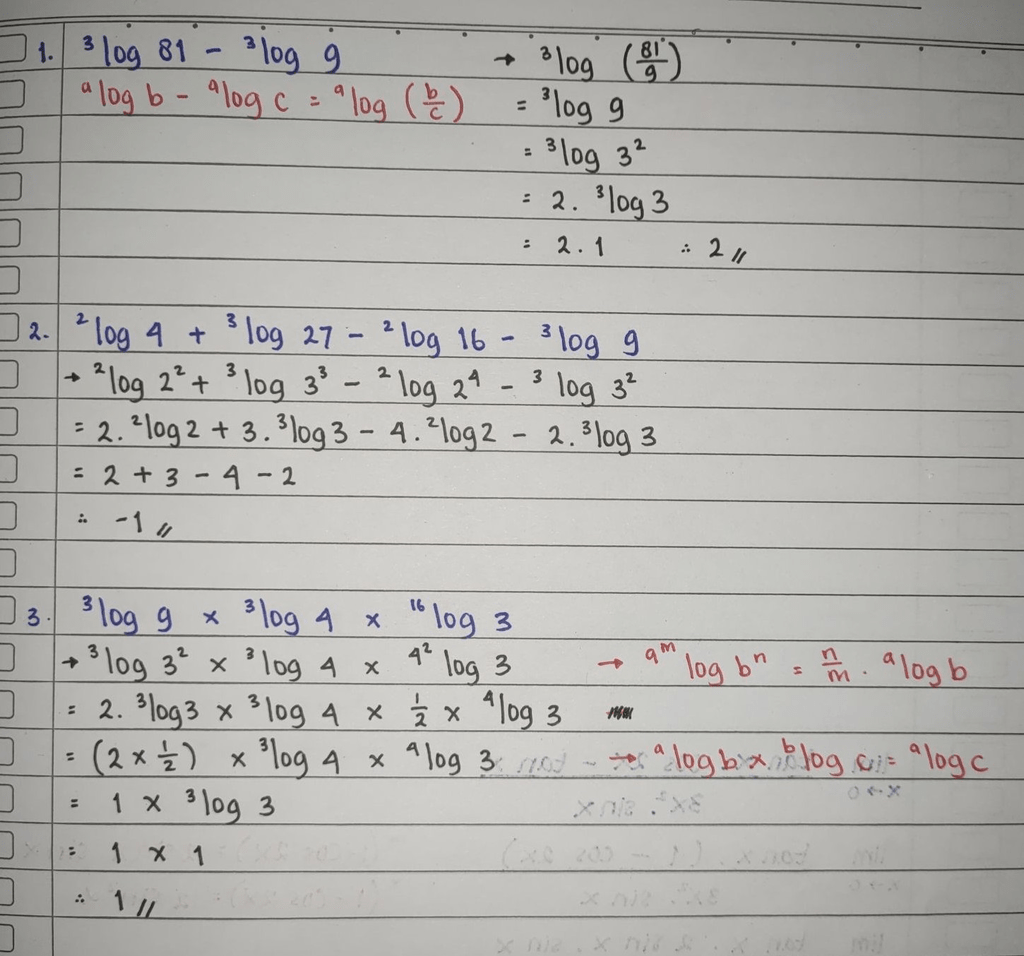 1. ³log 81 - ³log 9 → ³log (81/9)
ᵃlog b - ᵃlog c = ᵃlog (b/c) = ³log 9
= ³log 3²
= 2. ³log 3
= 2.1 ∴ 2 //
2. ²log 4 + ³log 27 - ²log 16 - ³log 9
→ ²log 2² + ³log 3³ - ²log 2⁴ - ³log 3²
= 2. ²log 2 + 3. ³log 3 - 4. ²log 2 - 2. ³log 3
= 2 + 3 - 4 - 2
∴ -1 //
3. ³log 9 × ³log 4 × ¹⁶log 3
→ ³log 3² × ³log 4 × ^(4²)log 3 → ^(aᵐ)log bⁿ = n/m . ᵃlog b
= 2. ³log 3 × ³log 4 × 1/2 × ⁴log 3
= (2 × 1/2) × ³log 4 × ⁴log 3 → ᵃlog b × ᵇlog c = ᵃlog c
= 1 × ³log 3
= 1 × 1
∴ 1 //